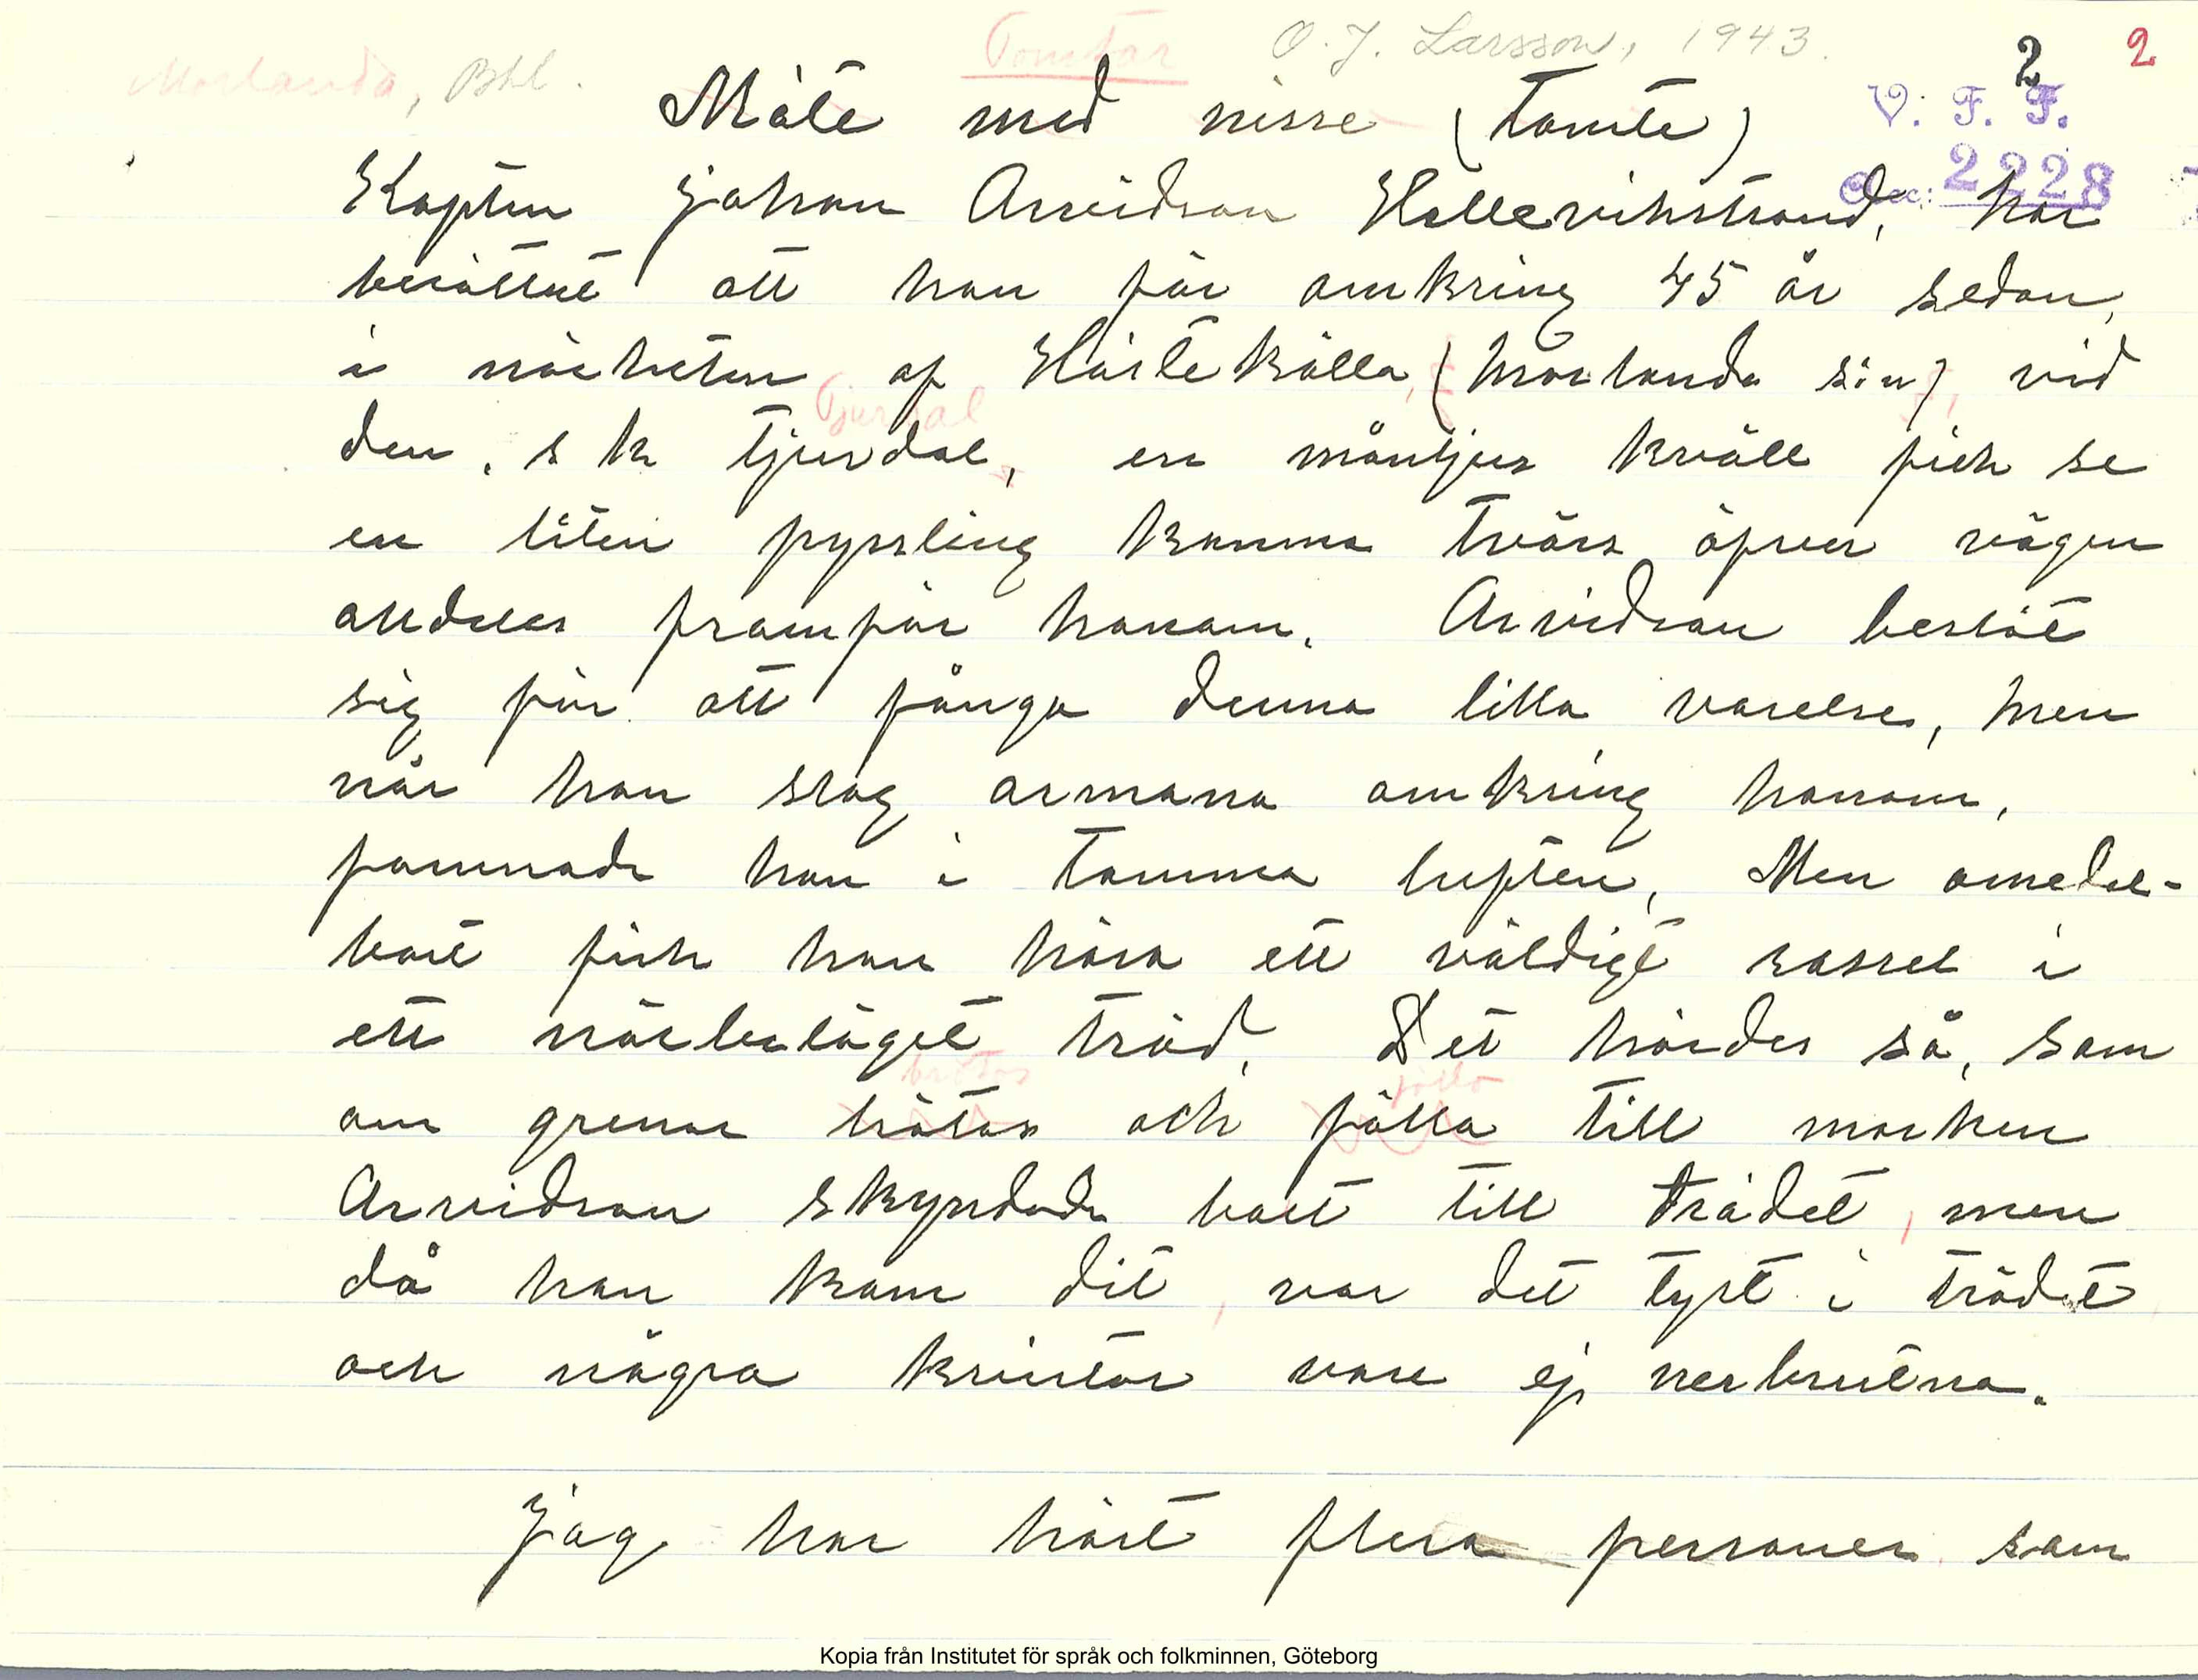 Morlanda, Bhl. Tomtar O. J. Larsson, 1943. 2 2
Möte med nisse (Tomte) V. F. F.
Kapten Johan Arvidson Hällevikstrand, har 2228
berättat att han för omkring 45 år sedan,
i närheten af Hästekälla, (Morlanda s:n) vid
Tjurdal
den, s k Tjurdal, en månljus kväll fick se
en liten pyssling komma tvärs öfver vägen
alldeles framför honom. Arvidson beslöt
sig för att fånga denna lilla varelse, men
när han slog armarna omkring honom,
famnade han i tomma luften, Men omedel-
bart fick han höra ett väldigt rassel i
ett närbeläget träd. Det hördes så, som
brötos föllo
om grenar brötos och fölla till marken
Arvidson skyndade bort till trädet, men
då han kom dit, var det tyst i trädet
och några kvistar vare ej nerbrutna.
Jag har hört flera personer som
Kopia från Institutet för språk och folkminnen, Göteborg